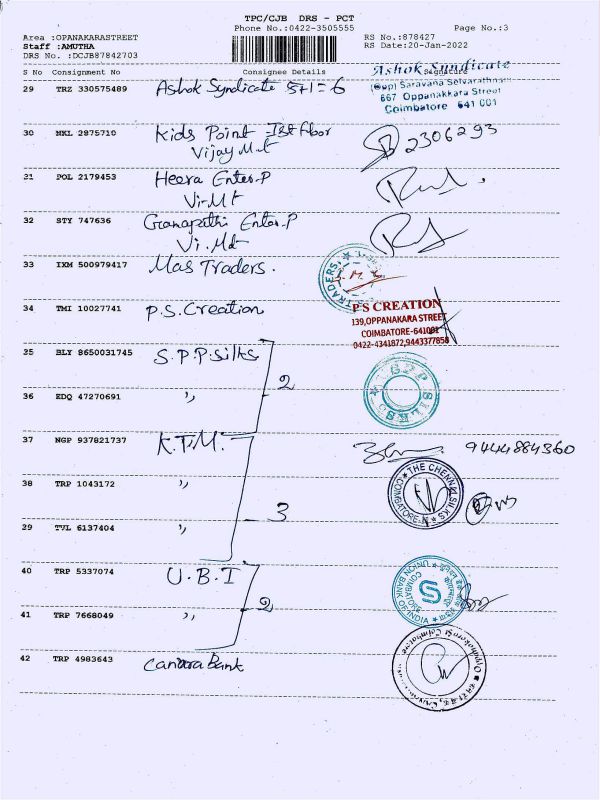 TPC/CJB DRS - PCT
Phone No.:0422-3505555
Page No.:3
Area :OPANAKARASTREET
RS No.:878427
Staff :AMUTHA
RS Date:20-Jan-2022
DRS No. :DCJB87842703
S No Consignment No Consignee Details Signature
29 TRZ 330575489 Ashok Syndicate 5+1=6
Ashok Syndicate
(opp) Saravana Selvarathnam
667 Oppanakkara Street
Coimbatore 641 001
30 NKL 2875710 Kids Point 1st floor
Vijay M.t
2306293
21 POL 2179453 Heera Enter.P
Vi.Mt
32 STY 747636 Ganapathi Enter.P
Vi.Mt
33 IXM 500979417 Mas Traders.
TRADERS
34 TMI 10027741 P.S.Creation
P S CREATION
139,OPPANAKARA STREET
COIMBATORE-641001
0422-4341872,9443377858
25 BLY 8650031745 S.P.P.Silks
2
36 EDQ 47270691 ,,
37 NGP 937821737 K.T.M.
9444884360
38 TRP 1043172 ,,
THE CHENNAI SILKS
COIMBATORE
3
29 TVL 6137404 ,,
40 TRP 5337074 U.B.I
2
UNION BANK OF INDIA
COIMBATORE
41 TRP 7668049 ,,
42 TRP 4983643 Canara Bank
Oppanakara St Coimbatore